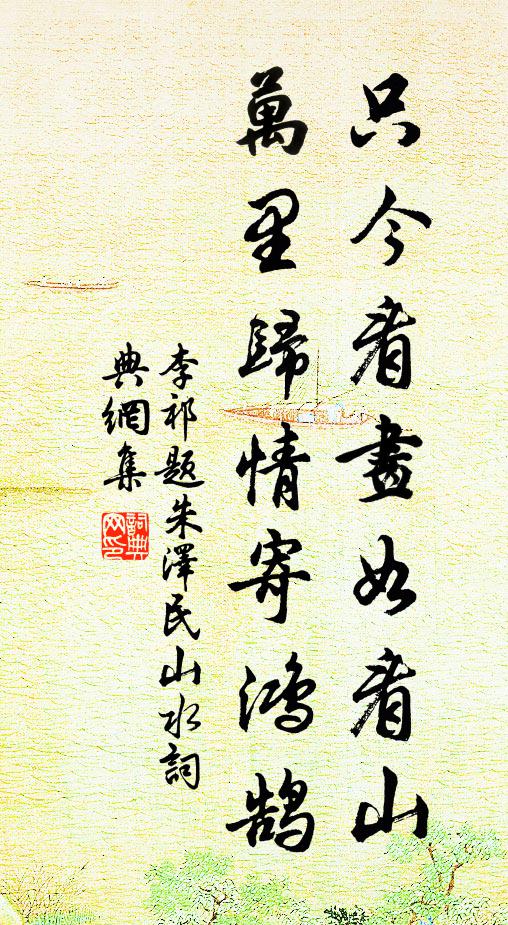 只今看畫如看山
萬里歸情寄鴻鵠
李祁題朱澤民山水詞
典網集
詞典網印